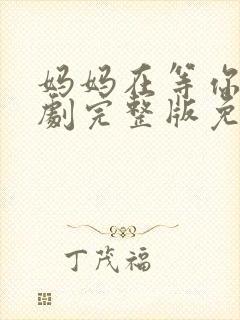 妈妈在等你
劇完整版免
丁茂福